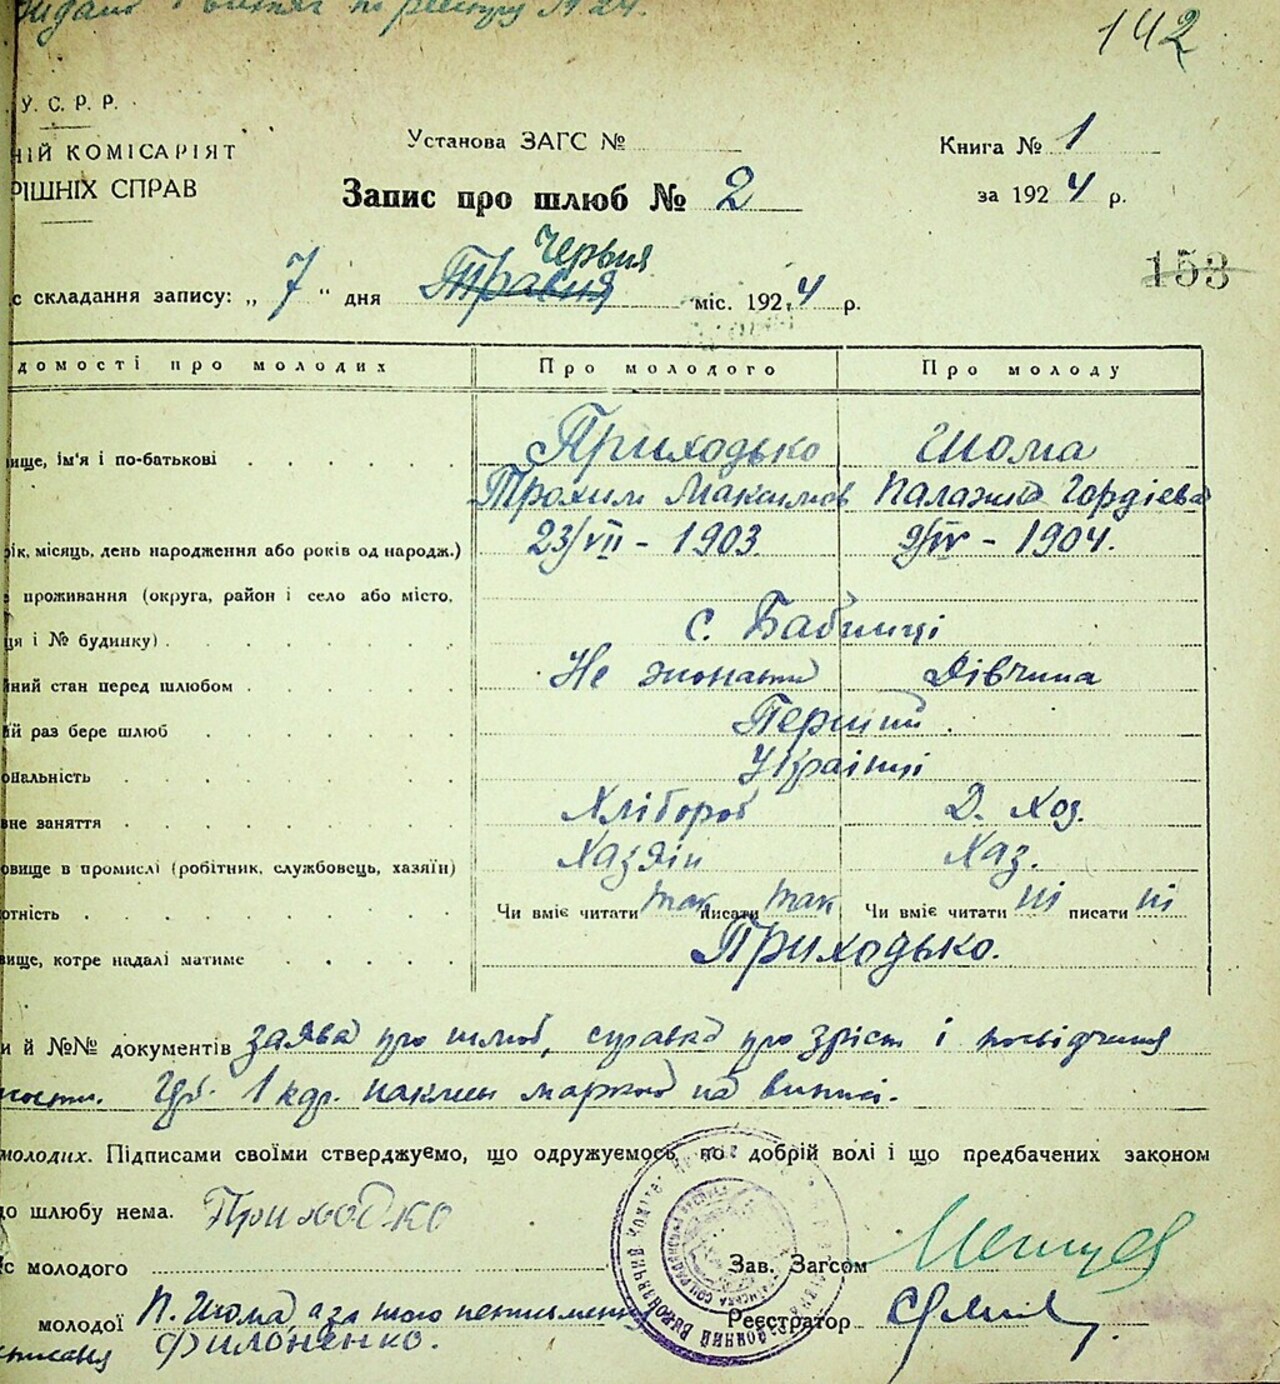 Видано витяг по реєстру № 24.
142
У. С. Р. Р.
НІЙ КОМІСАРІЯТ
РІШНІХ СПРАВ
Установа ЗАГС №
Книга № 1
Запис про шлюб № 2
за 1924 р.
153
Червня
с складання запису: „ 7 “ дня Травня міс. 1924 р.
домості про молодих Про молодого Про молоду
вище, ім'я і по-батькові Приходько Шома
Трохим Максимов Палажка Гордієва
рік, місяць, день народження або років од народж.) 23/VII - 1903. 9/IV - 1904.
проживання (округа, район і село або місто,
ця і № будинку) с. Бабинці
ний стан перед шлюбом Не жонатий Дівчина
ий раз бере шлюб Перший.
ональність Українці
вне заняття Хлібороб Д. Хоз.
овище в промислі (робітник, службовець, хазяїн) Хазяїн Хаз.
отність Чи вміє читати так писати так Чи вміє читати ні писати ні
вище, котре надалі матиме Приходько.
и й №№ документів заява про шлюб, справка про зріст і посвідчення
1 кар. наклеен маркой на виписі.
молодих. Підписами своїми стверджуємо, що одружуємось по добрій волі і що предбачених законом
до шлюбу нема. Приходко
с молодого Зав. Загсом
молодої П. Шома, а за нею неписьменну Реєстратор
Филоненко.